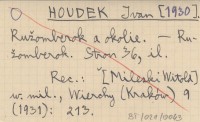 HOUDEK Ivan [1930].
Ružomberok a okolie. — Ru-
žomberok. Stron 36, il.
Rec.: [Mileski Witold]
w. mil., Wierchy (Kraków) 9
(1931): 213.